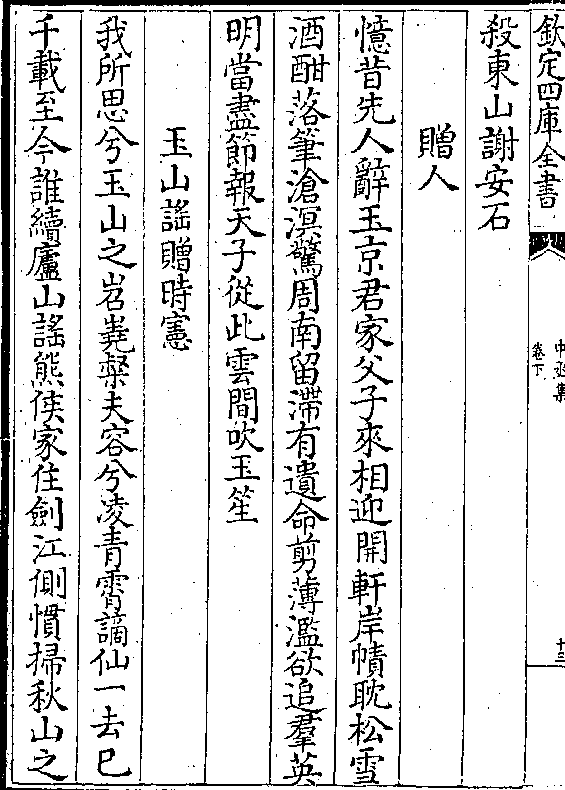 欽定四庫全書
卷下
十三
殺東山謝安石
贈人
憶昔先人辭玉京君家父子來相迎開軒岸幘耽松雪
酒酣落筆滄溟驚周南留滯有遺命剪薄濫欲追羣英
明當盡節報天子從此雲間吹玉笙
玉山謠贈時憲
我所思兮玉山之岧嶤粲夫容兮凌青霄謫仙一去已
千載至今誰續廬山謠熊侯家住劍江側慣掃秋山之